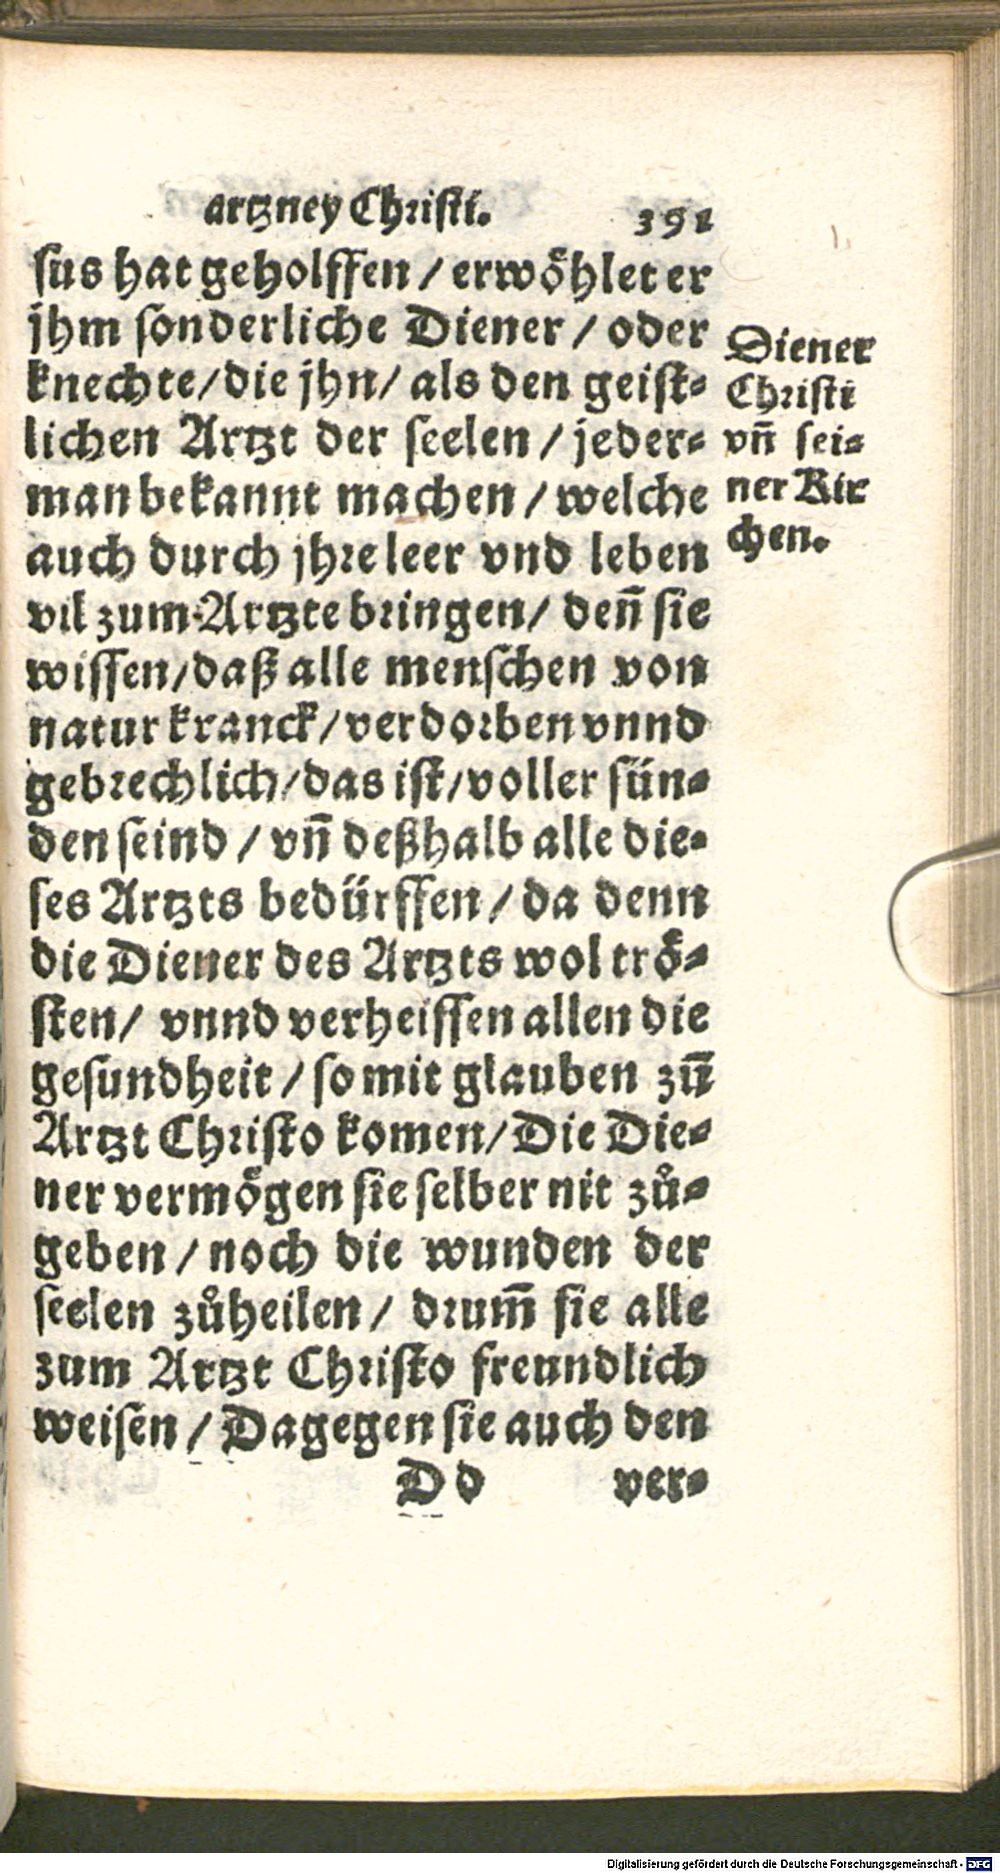 artzney Christi. 391
sus hat geholffen / erwöhlet er
jhm sonderliche Diener / oder
knechte/die jhn/ als den geist-
lichen Artzt der seelen / jeder-
man bekannt machen / welche
auch durch jhre leer vnd leben
vil zum Artzte bringen/ deñ sie
wissen/daß alle menschen von
natur kranck/verdorben vnnd
gebrechlich/das ist/voller sün-
den seind / vñ deßhalb alle die-
ses Artzts bedürffen / da denn
die Diener des Artzts wol trö-
sten/ vnnd verheissen allen die
gesundheit / so mit glauben zũ
Artzt Christo komen/Die Die-
ner vermögen sie selber nit zů-
geben / noch die wunden der
seelen zůheilen / drum̃ sie alle
zum Artzt Christo freundlich
weisen / Dagegen sie auch den
D d ver-
Diener
Christi
vñ sei-
ner Kir
chen.
Digitalisierung gefördert durch die Deutsche Forschungsgemeinschaft - DFG